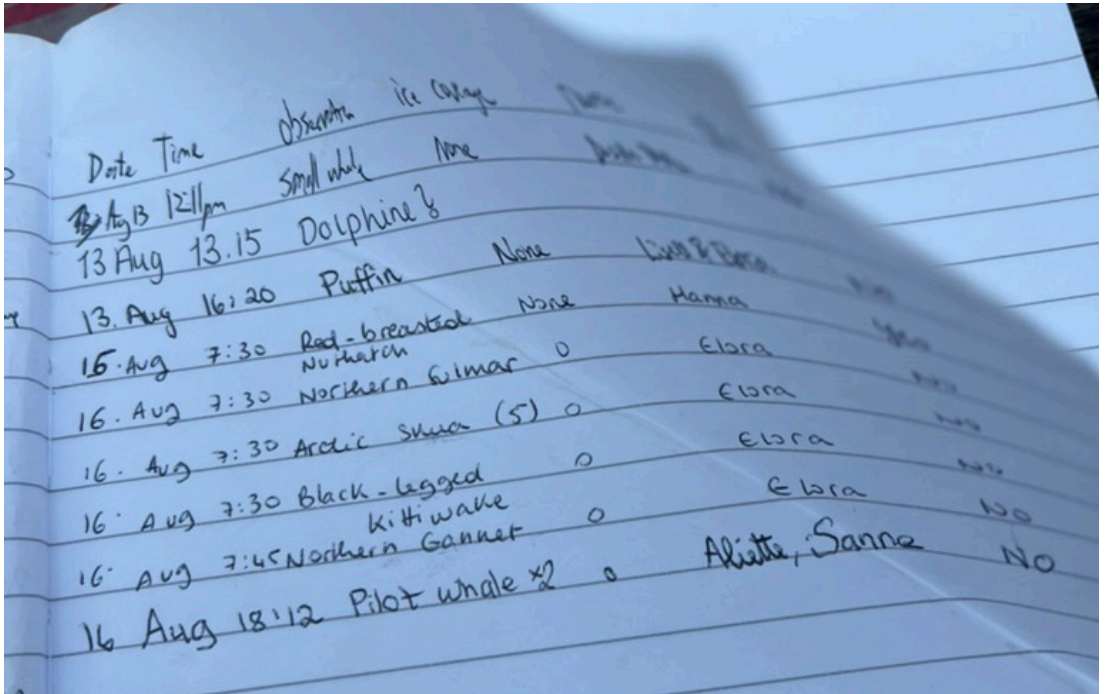 Date Time observation ice coverage Name
Aug 13 12:11pm small whale None
13 Aug 13.15 Dolphine?
13. Aug 16:20 Puffin None No
15. Aug 7:30 Red-breasted None Hanna Yes
Nuthatch
16. Aug 7:30 Northern Fulmar 0 Elora No
16. Aug 7:30 Arctic Skua (5) 0 Elora No
16. Aug 7:30 Black-legged 0 Elora No
Kittiwake
16. Aug 7:45 Northern Gannet 0 Elora No
16 Aug 18:12 Pilot whale x2 0 Aliette, Sanne No